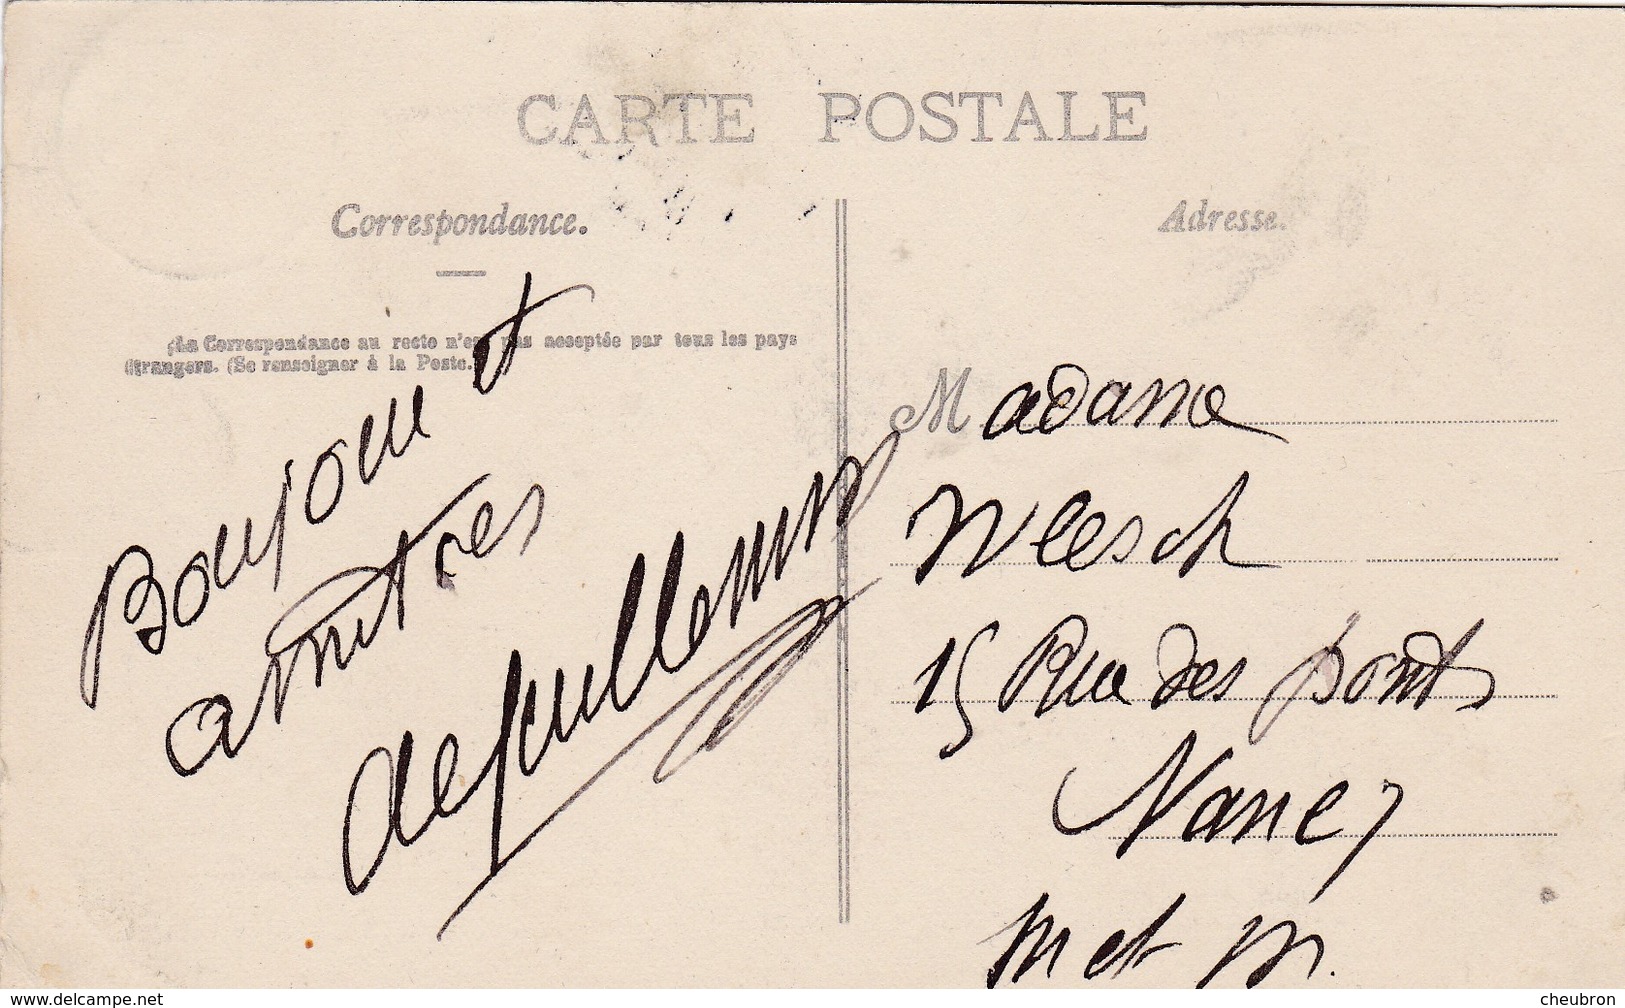 CARTE POSTALE
Correspondance.
Adresse.
La Correspondance au recto n'est pas acceptée par tous les pays
étrangers. (Se renseigner à la Poste.)
Bonjour et
amitiés
Madame
Wlesch
15 Rue des ponts
Nancy
M et M.
www.delcampe.net
cheubron